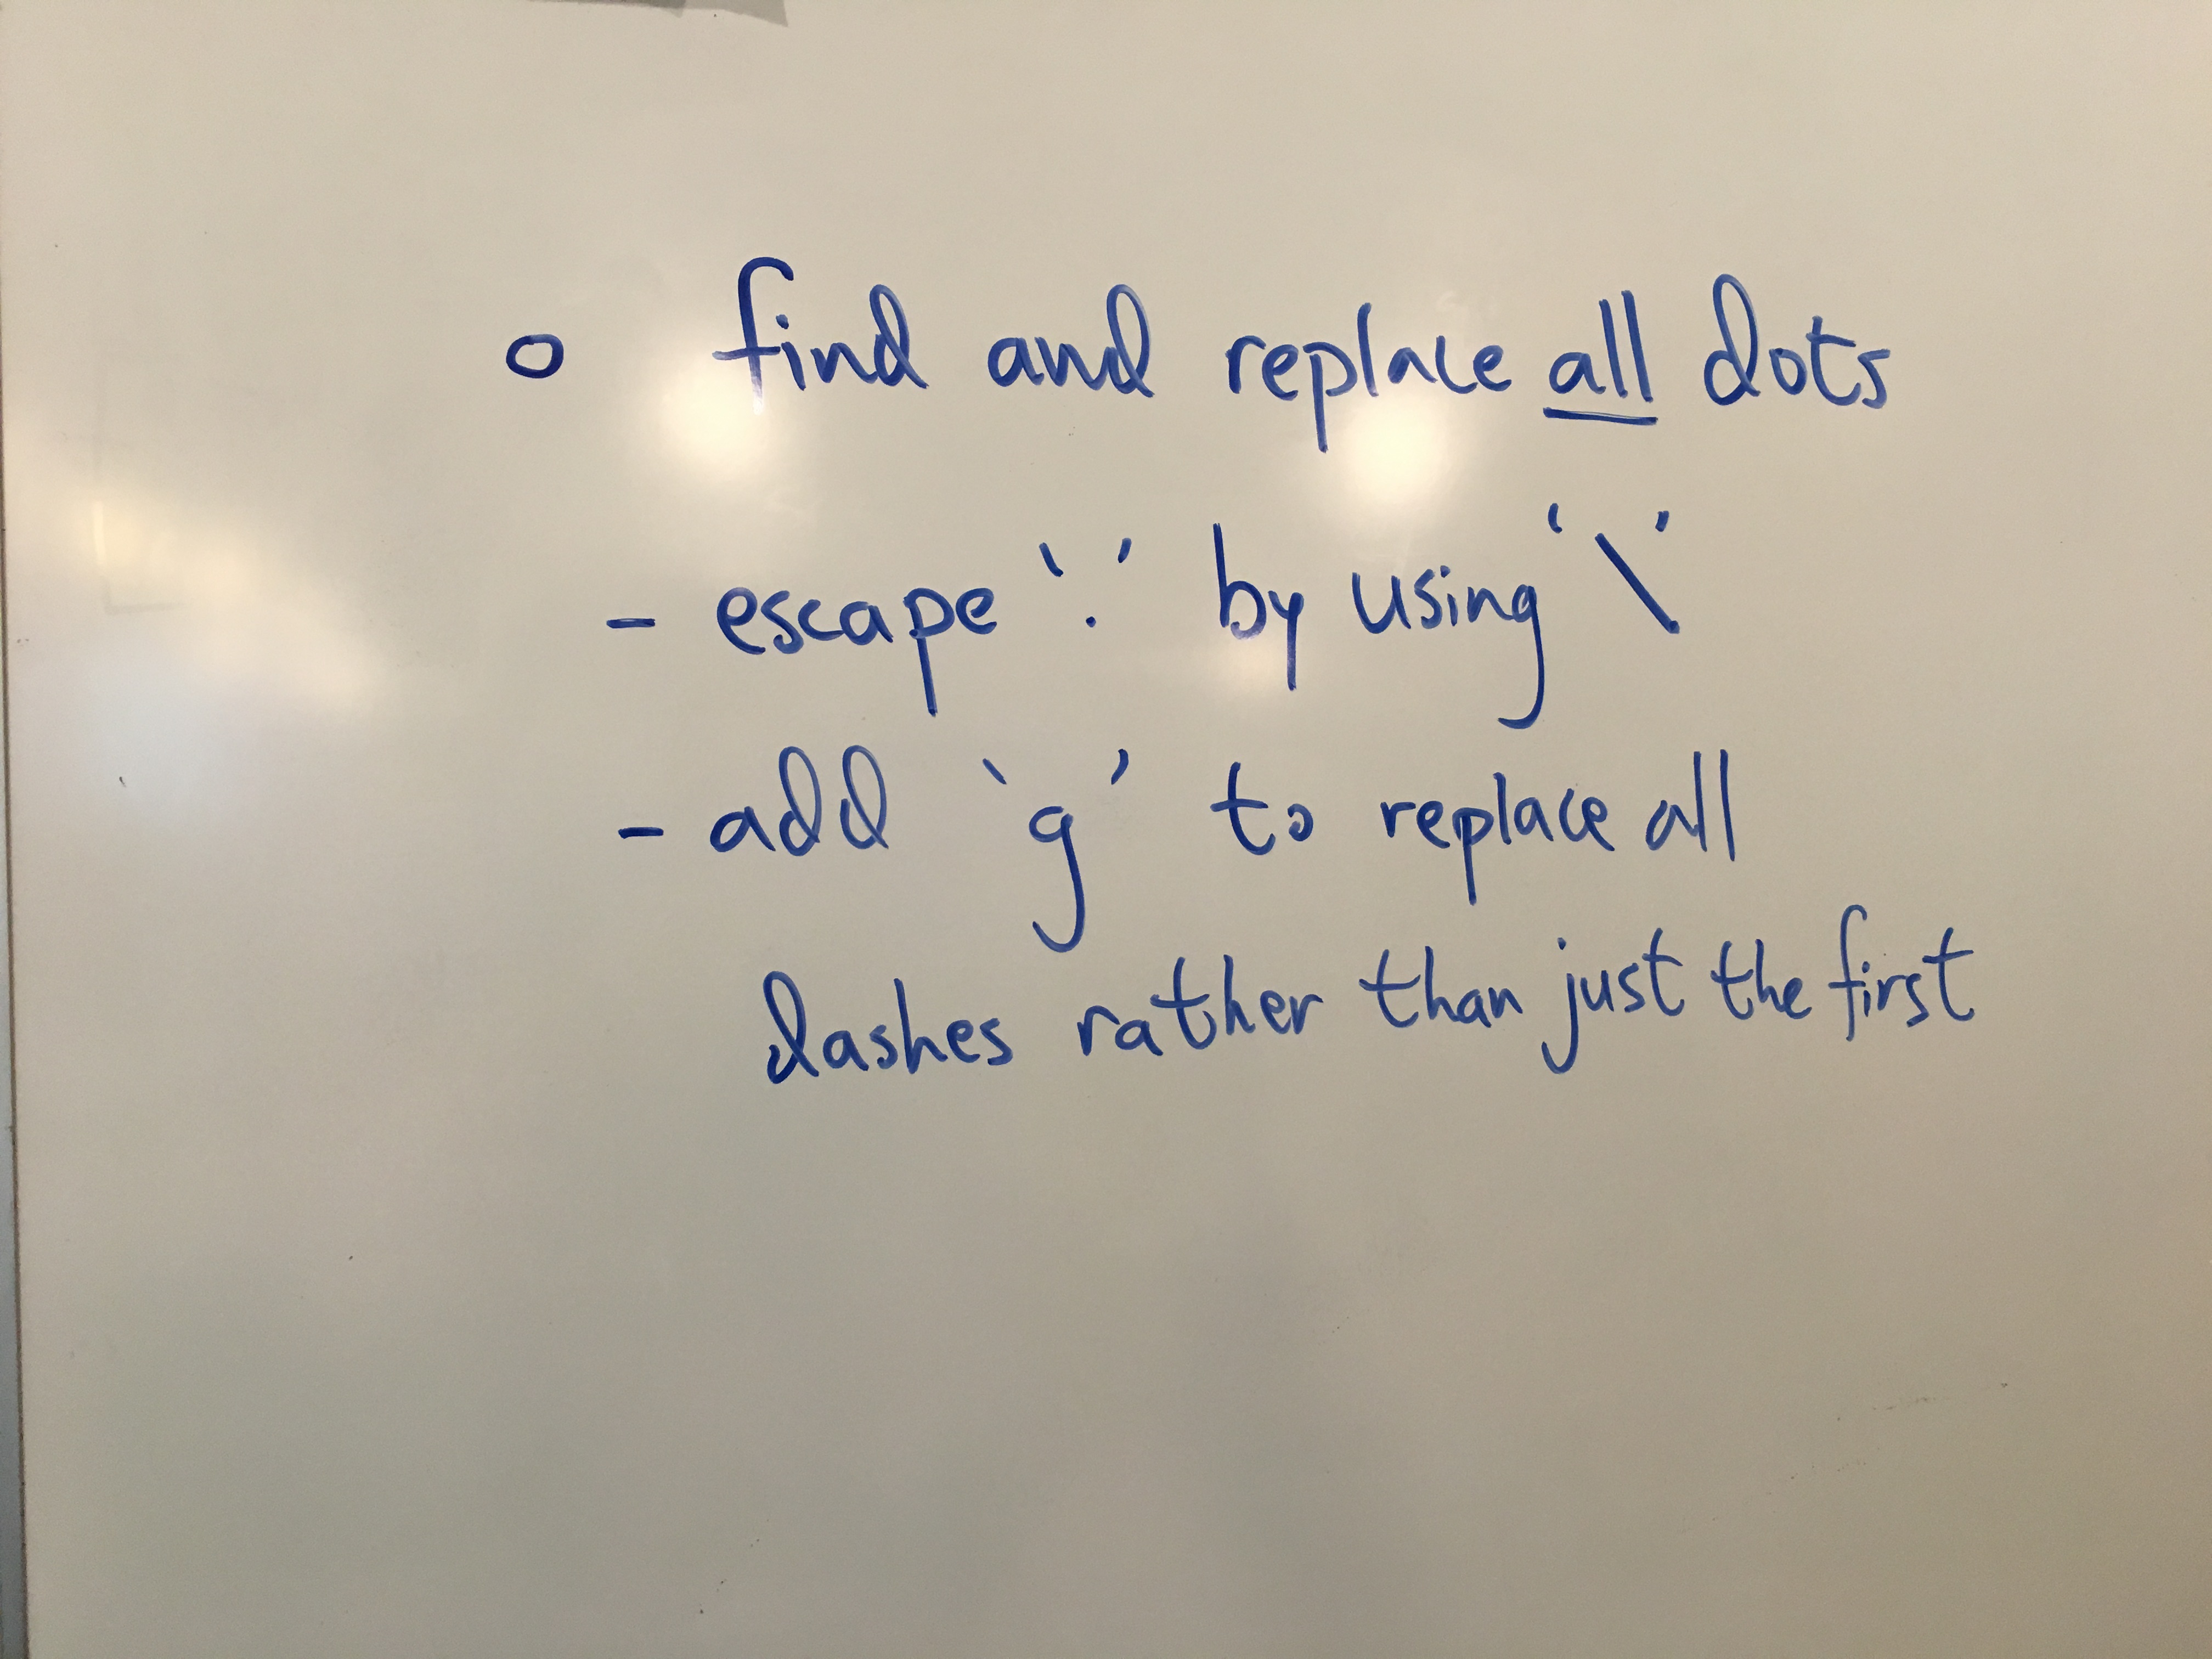 o find and replace all dots
- escape '.' by using '\'
- add `g' to replace all
dashes rather than just the first